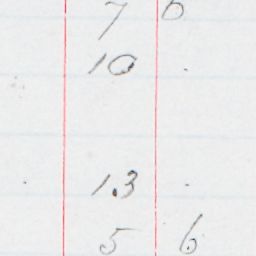 7 6
10 .
13 .
5 6